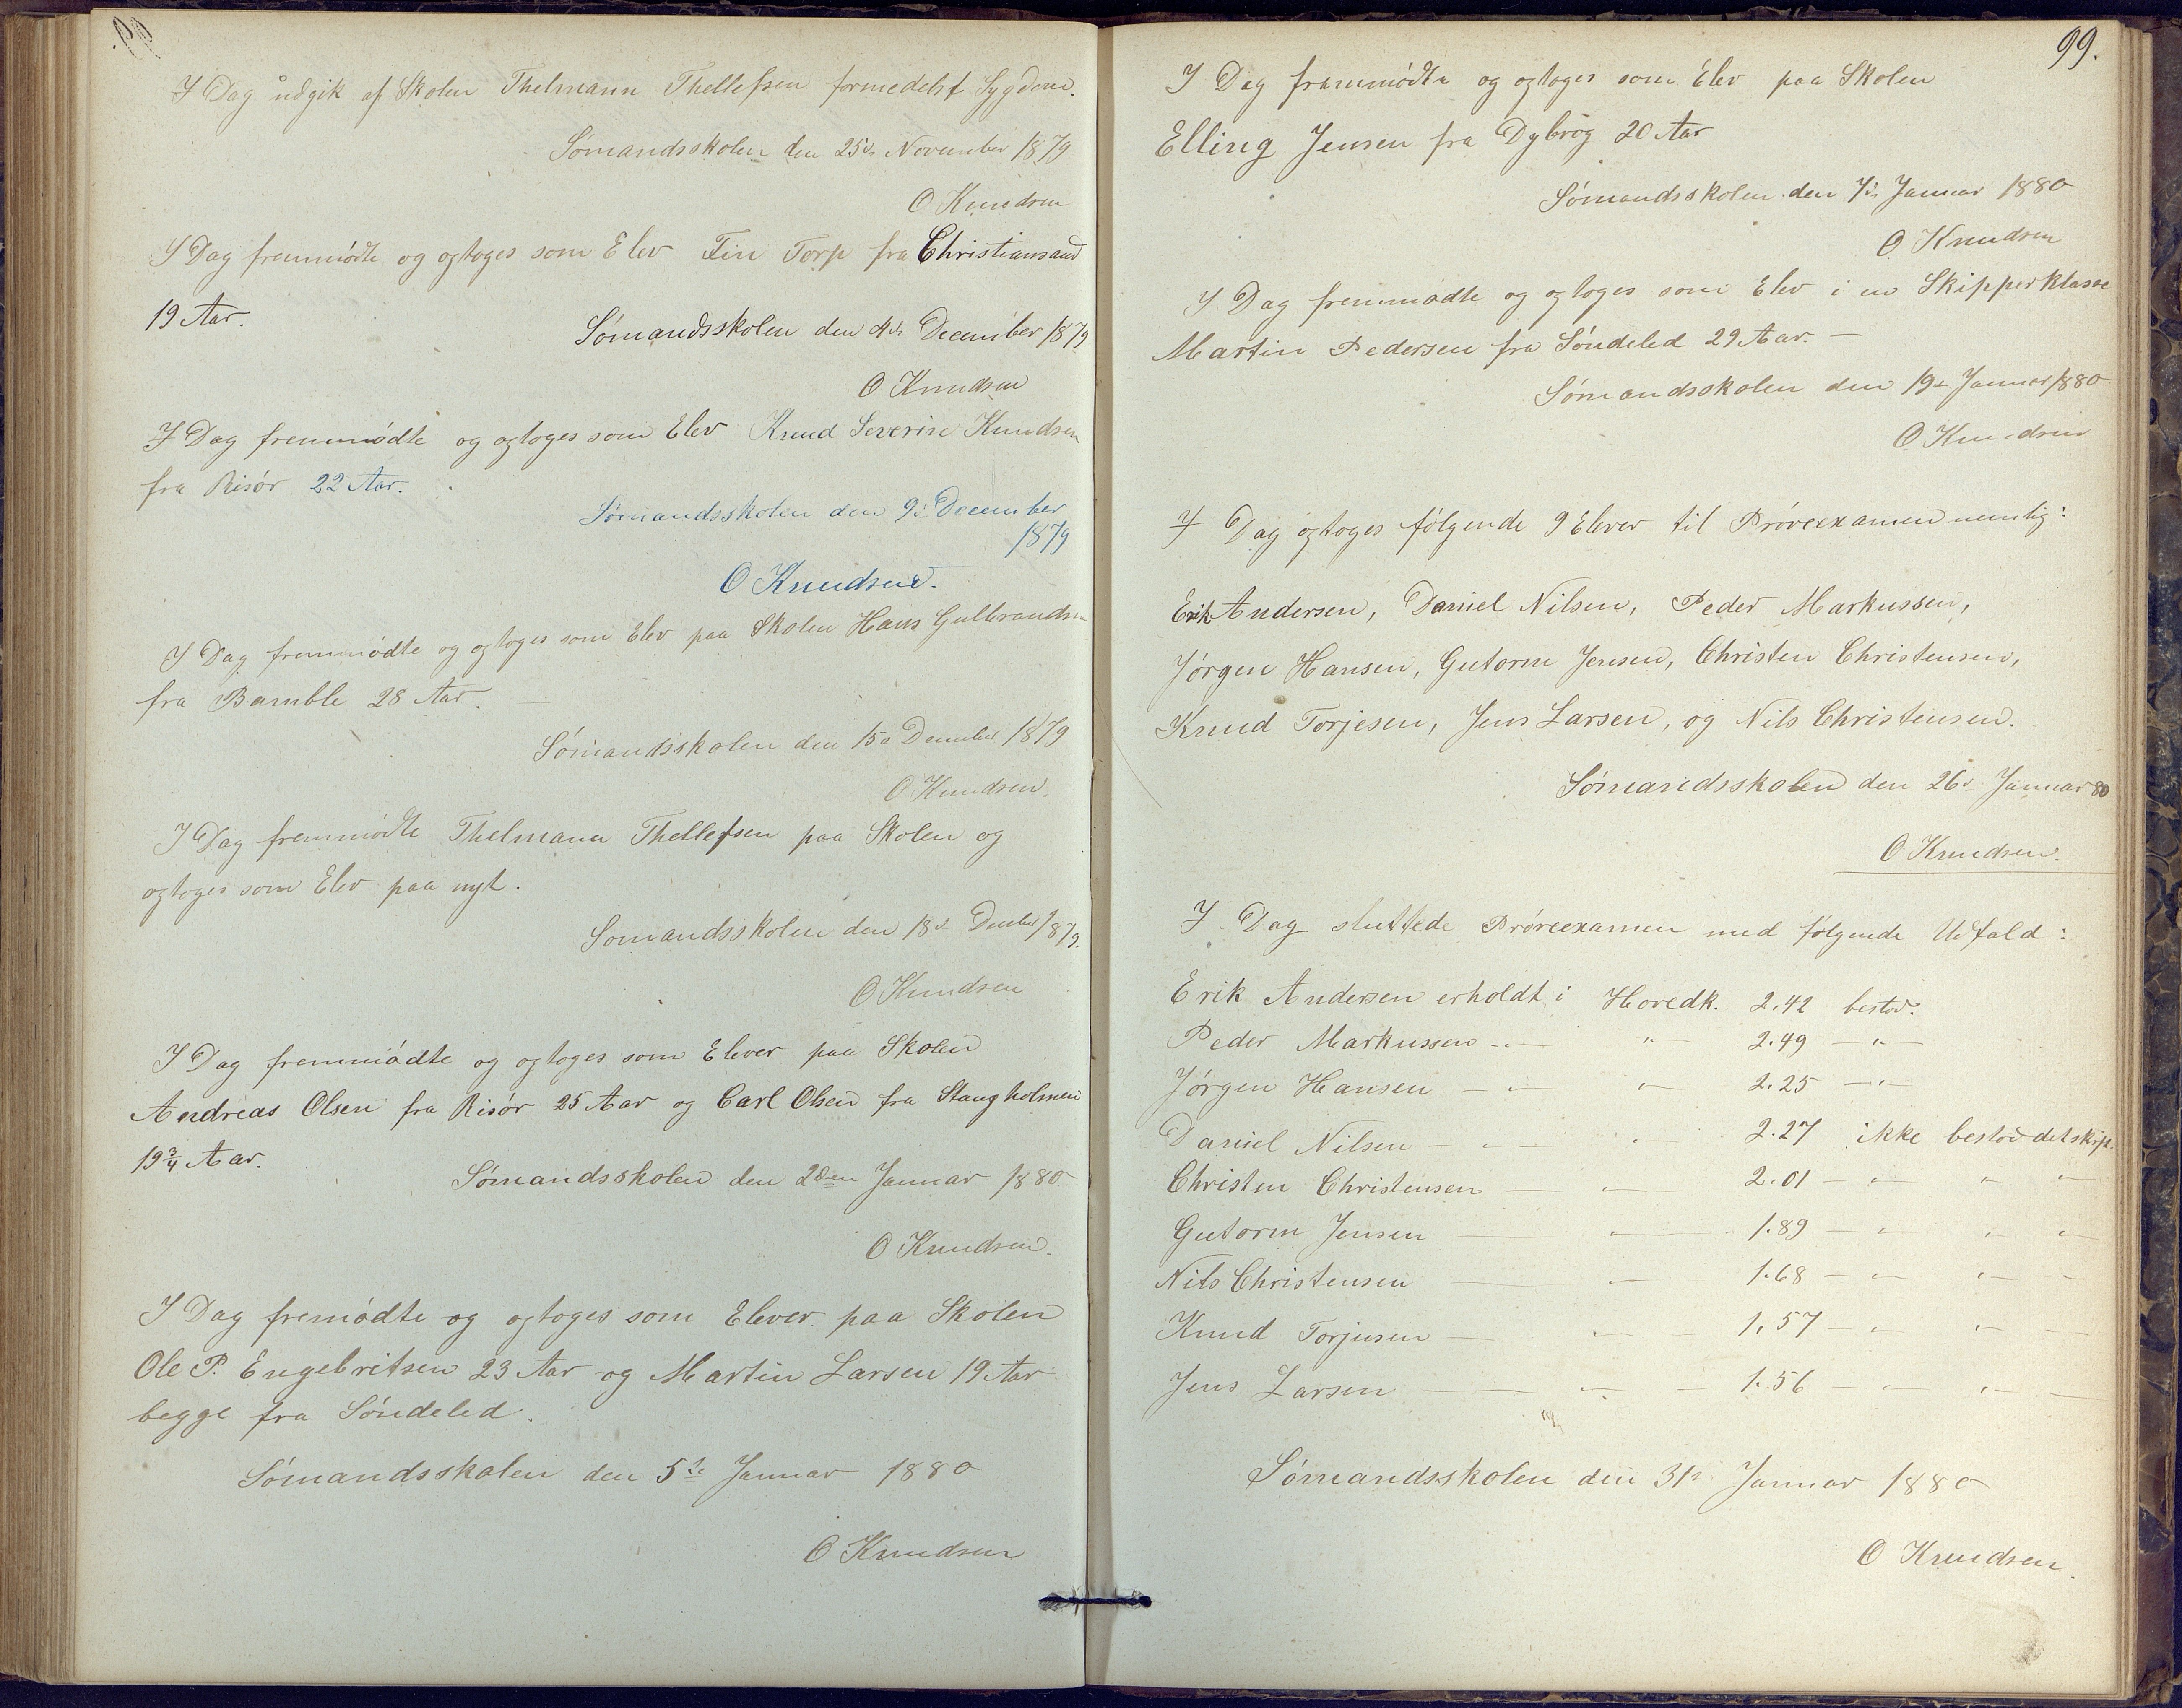 I Dag udgik af Skolen Thelmann Thellefsen formedelst Sygdom.
Sømandsskolen den 25de November 1879
O Knudsen
I Dag fremmødte og optoges som Elev Fin Torp fra Christiansand
19 Aar.
Sømandsskolen den 4de December 1879
O Knudsen
I Dag fremmødte og optoges som Elev Knud Severin Knudsen
fra Risör 22 Aar.
Sømandsskolen den 9de December
1879
O Knudsen.
I Dag fremmødte og optoges som Elev paa Skolen Hans Gulbrandsen
fra Bamble 28 Aar. —
Sømandsskolen den 15de December 1879
O Knudsen.
I Dag fremmødte Thelmann Thellefsen paa Skolen og
optoges som Elev paa nyt.
Sømandsskolen den 18de Decbr 1879.
O Knudsen
I Dag fremmødte og optoges som Elever paa Skolen
Andreas Olsen fra Risör 25 Aar og Carl Olsen fra Stangholmen
19 3/4 Aar.
Sømandsskolen den 2den Januar 1880
O Knudsen.
I Dag fremødte og optoges som Elever paa Skolen
Ole P. Engebritsen 23 Aar og Martin Larsen 19 Aar
begge fra Söndeled.
Sømandsskolen den 5te Januar 1880
O Knudsen
99.
I Dag fremmødte og optoges som Elev paa Skolen
Elling Jensen fra Dybvög 20 Aar
Sømandsskolen den 7de Januar 1880
O Knudsen
I Dag fremmødte og optoges som Elev i en Skipperklasse
Martin Pedersen fra Söndeled 29 Aar. —
Sømandsskolen den 19de Januar 1880
O Knudsen
I Dag optoges følgende 9 Elever til Prøveexamen nemlig:
Erik Andersen, Daniel Nilsen, Peder Markussen,
Jørgen Hansen, Gutorm Jensen, Christen Christensen,
Knud Torjesen, Jens Larsen, og Nils Christensen.
Sømandsskolen den 26de Januar 80
O Knudsen.
I Dag sluttede Prøveexamen med følgende Udfald:
Erik Andersen erholdt i Hovedk. 2.42 bestod.
Peder Markussen — " — 2.49 — " —
Jørgen Hansen — " — " — 2.25 — " —
Daniel Nilsen — " — " — 2.27 ikke bestod det skip.
Christen Christensen — " — 2.01 — " — " — " —
Gutorm Jensen — " — 1.89 — " — " — " —
Nils Christensen — " — 1.68 — " — " — " —
Knud Torjusen — " — 1.57 — " — " — " —
Jens Larsen — " — 1.56 — " — " — " —
Sømandsskolen den 31te Januar 1880
O Knudsen.